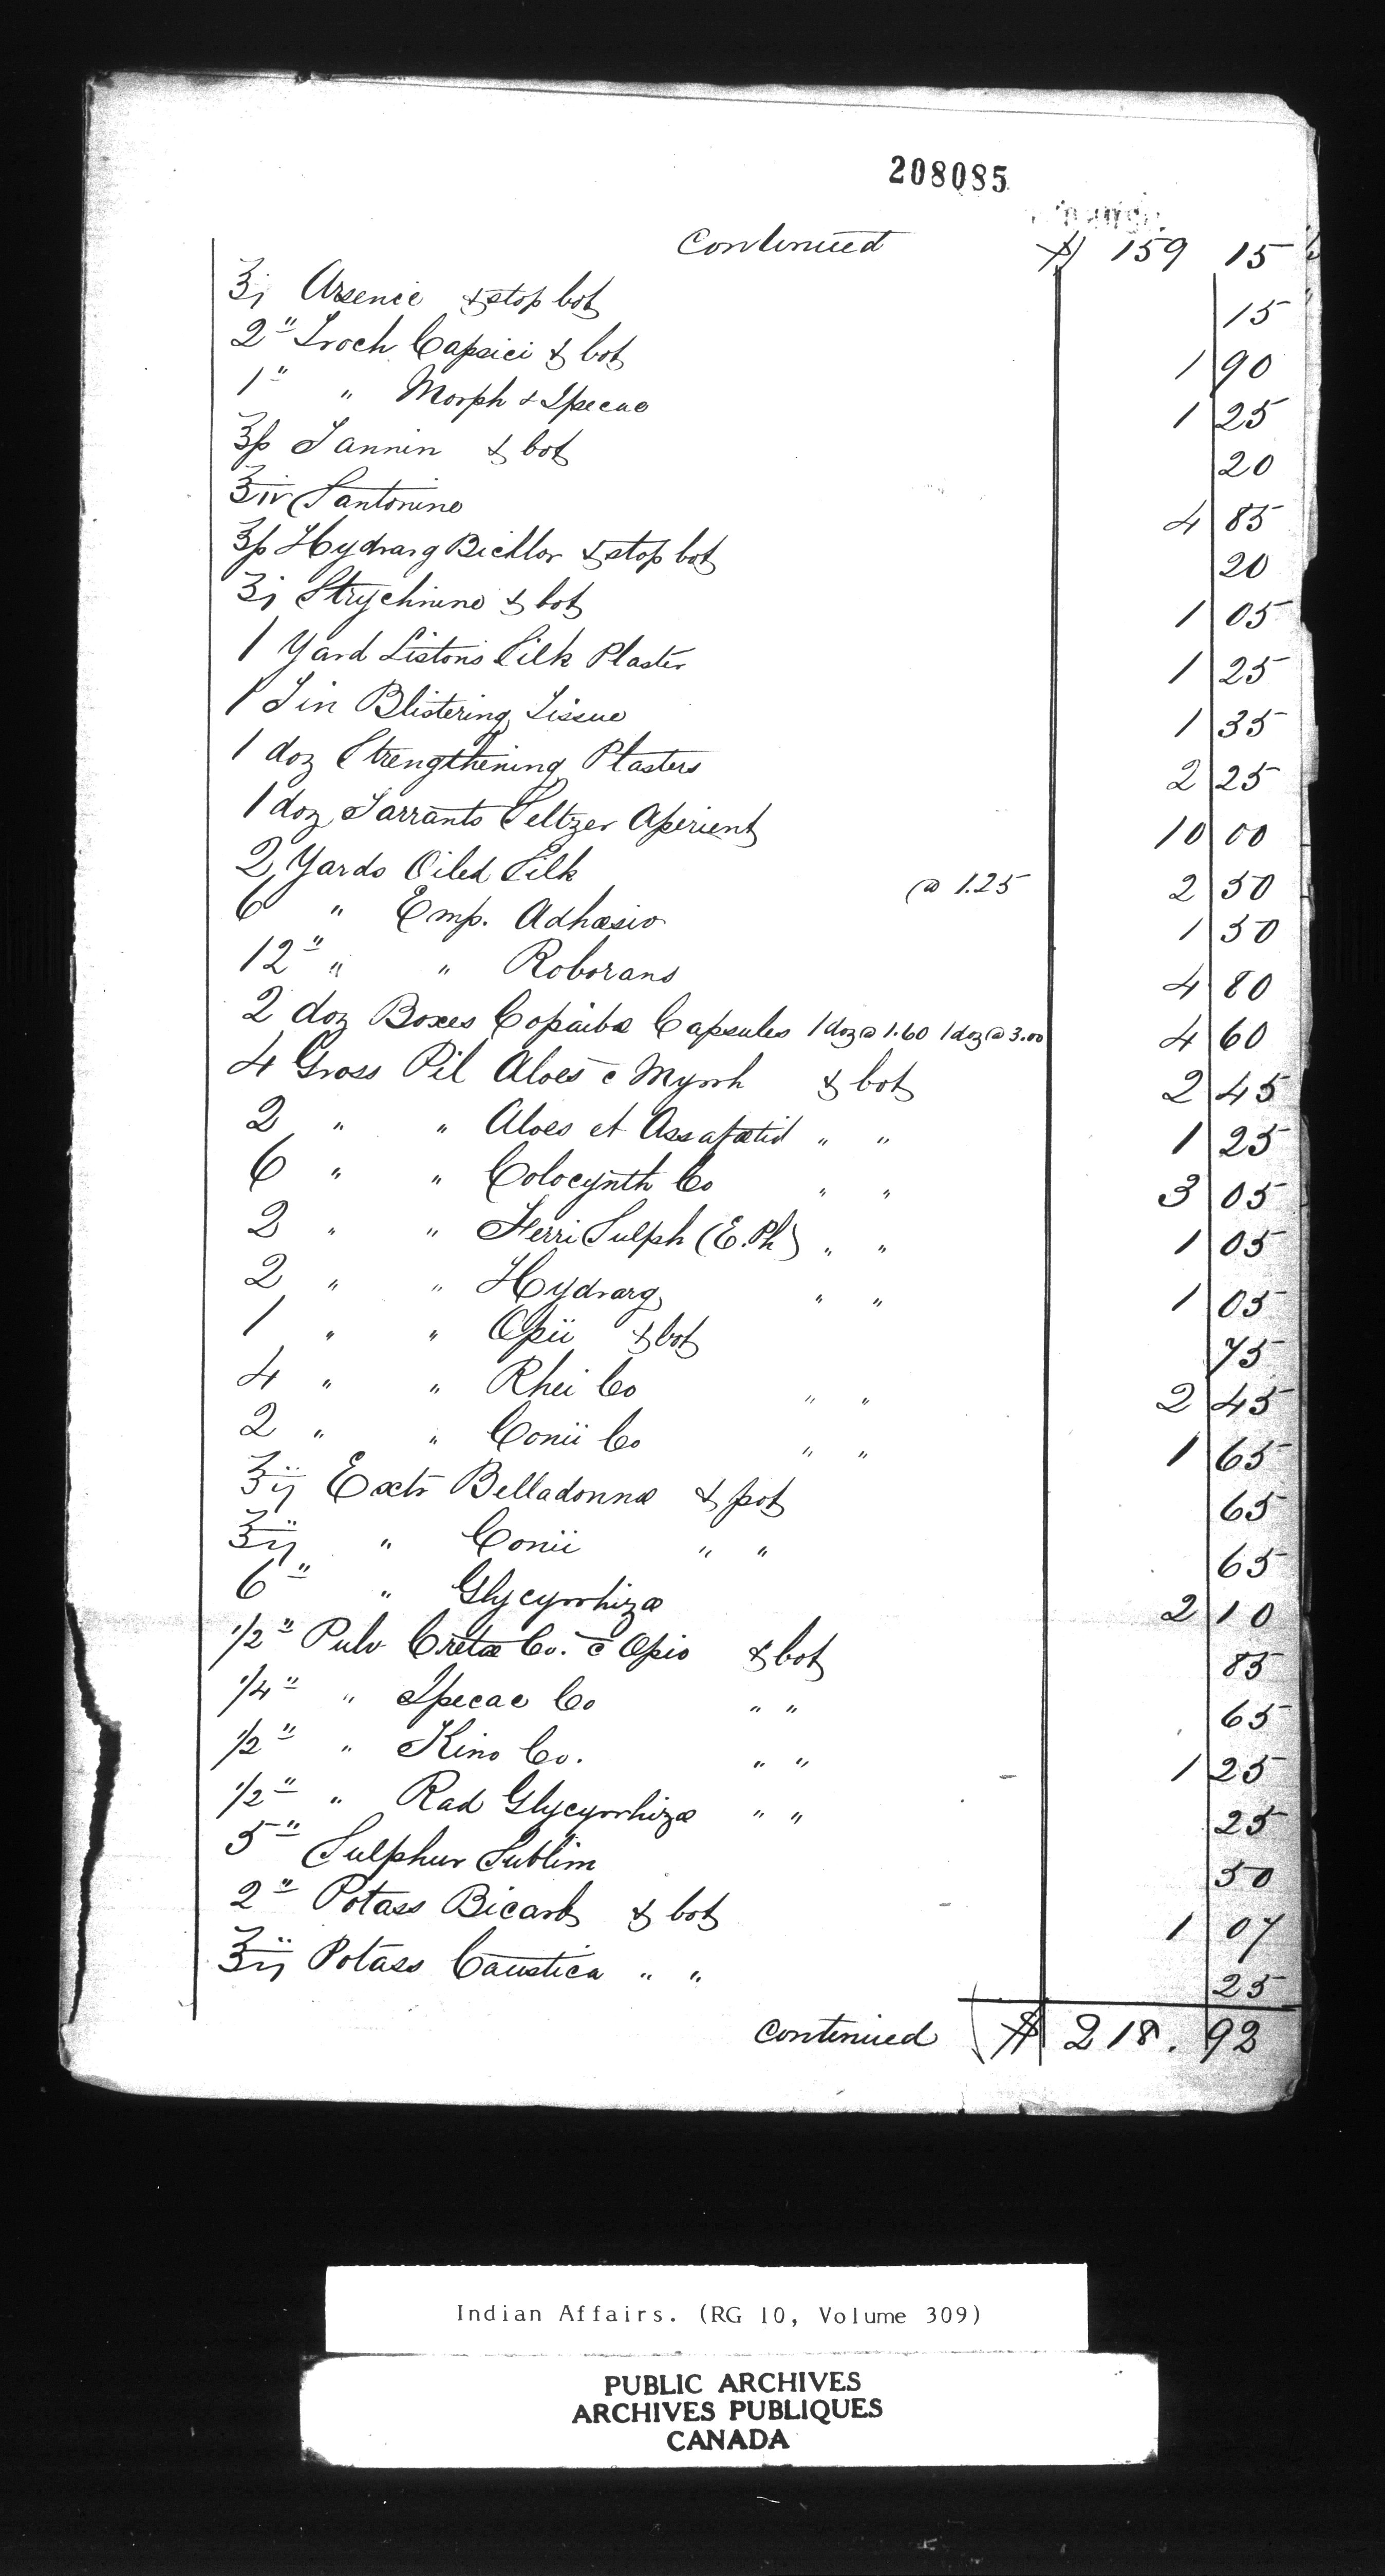 208085
Continued $ 159 15
℥j Arsenic & stop bot 15
2 " Troch Capsici & bot 1 90
1 " " Morph & Ipecac 1 25
℥ß Tannin & bot 20
℥iv Santonine 4 85
℥ß Hydrarg Bichlor & stop bot 20
ʒj Strychnine & bot 1 05
1 Yard Listons Silk Plaster 1 25
1 Tin Blistering Tissue 1 35
1 doz Strengthening Plasters 2 25
1 doz Tarrants Seltzer Aperient 10 00
2 Yards Oiled Silk @ 1.25 2 50
6 " Emp. Adhæsiv 1 50
12 " " " Roborans 4 80
2 doz Boxes Copaibæ Capsules 1 doz @ 1.60 1 doz @ 3.00 4 60
4 Gross Pil Aloes c̄ Myrrh & bot 2 45
2 " " Aloes et Assafœtid " " 1 25
6 " " Colocynth Co " " 3 05
2 " " Ferri Sulph (E. Ph) " " 1 05
2 " " Hydrarg " " 1 05
1 " " Opii & bot 75
4 " " Rhei Co " " 2 45
2 " " Conii Co " " 1 65
℥ij Extr Belladonnæ & pot 65
℥ij " Conii " " 65
6 " " Glycyrrhizæ 2 10
1/2 " Pulv Cretæ Co. c̄ Opio & bot 85
1/4 " " Ipecac Co " " 65
1/2 " " Kino Co. " " 1 25
1/2 " " Rad Glycyrrhizæ " " 25
5 " Sulphur Sublim 50
2 " Potass Bicarb & bot 1 07
℥ij Potass Caustica " " 25
Continued $ 218. 92
Indian Affairs. (RG 10, Volume 309)
PUBLIC ARCHIVES
ARCHIVES PUBLIQUES
CANADA